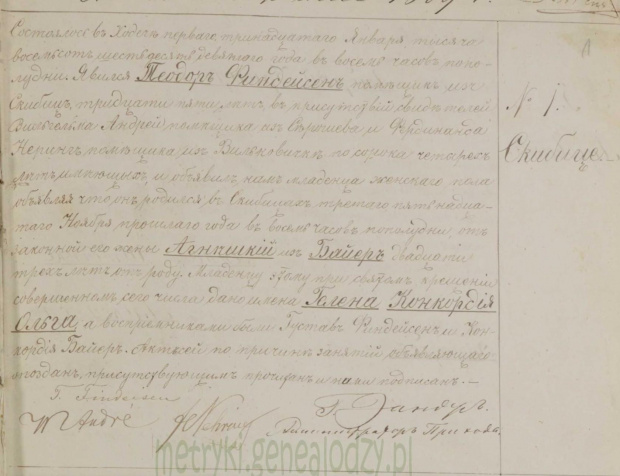 1869
1
Состоялось въ Ходечъ перваго, тринадцатаго Января тысяча
восемьсотъ шестьдесятъ девятаго года въ восемь часовъ попо-
лудни. Явился Теодоръ Финдейсенъ помѣщикъ изъ
Скибицъ, тридцати пяти лѣтъ въ присутствіи свидѣтелей
Вильгельма Андрей помѣщика изъ и Фердинанда
Неринга помѣщика изъ Вильковичкъ по сорока четыре
лѣтъ имѣющихъ, и объявилъ намъ младенца женскаго пола
объявляя что онъ родился въ Скибицахъ третьяго пятьнадца-
таго Ноября прошлаго года въ восемь часовъ пополудни отъ
законной его жены Агнешкій изъ Байеръ двадцати
трехъ лѣтъ отъ роду. Младенцу этому при святомъ крещеніи
совершенномъ сего числа даны имена Гелена Конкордія
Ольга, а воспріемниками были Густавъ Финдейсенъ и Кон-
кордія Байеръ. Актъ сей по причинѣ занятій объявляющаго
позданъ, присутствующимъ прочитанъ и нами подписанъ. —
T. Findeisen
W André
Администраторъ Прихода
№ 1.
Скибице. —
metryki.genealodzy.pl